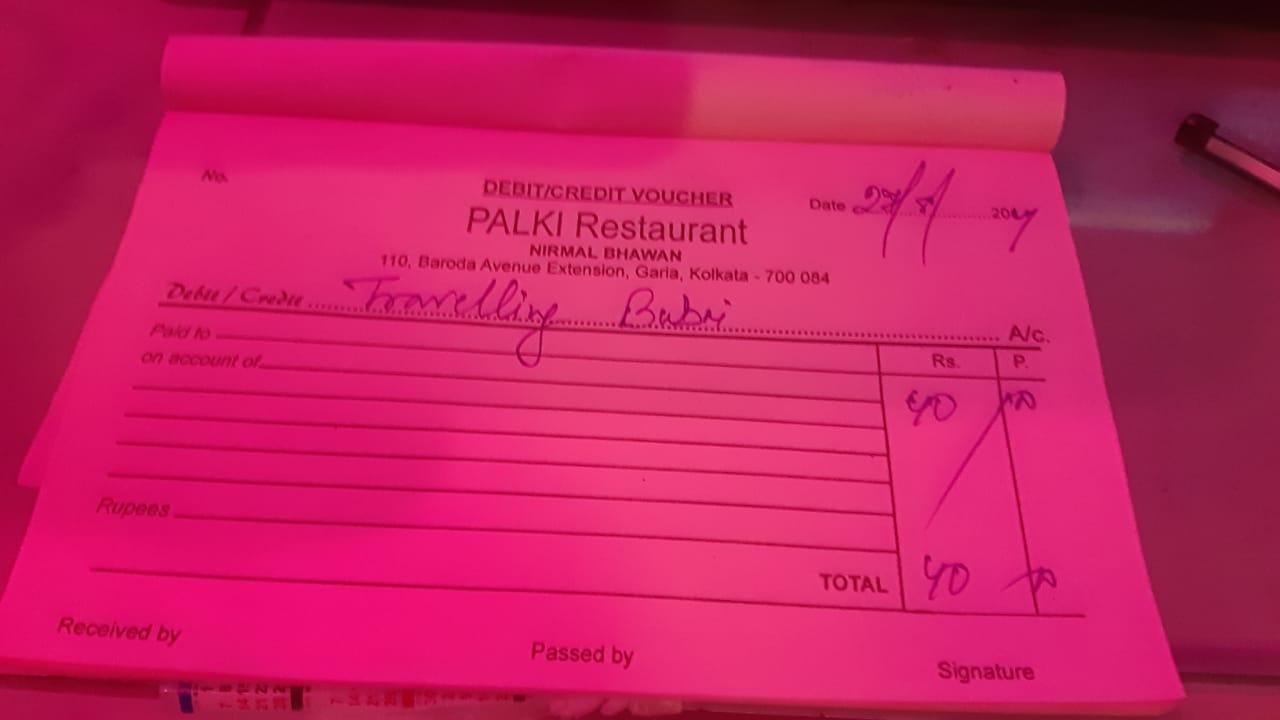 No.
DEBIT/CREDIT VOUCHER
Date 27/8/2024
PALKI Restaurant
NIRMAL BHAWAN
110, Baroda Avenue Extension, Garia, Kolkata - 700 084
Debit / Credit Travelling Babai A/c.
Paid to
Rs. P.
on account of
40
Rupees
TOTAL 40
Received by
Passed by
Signature